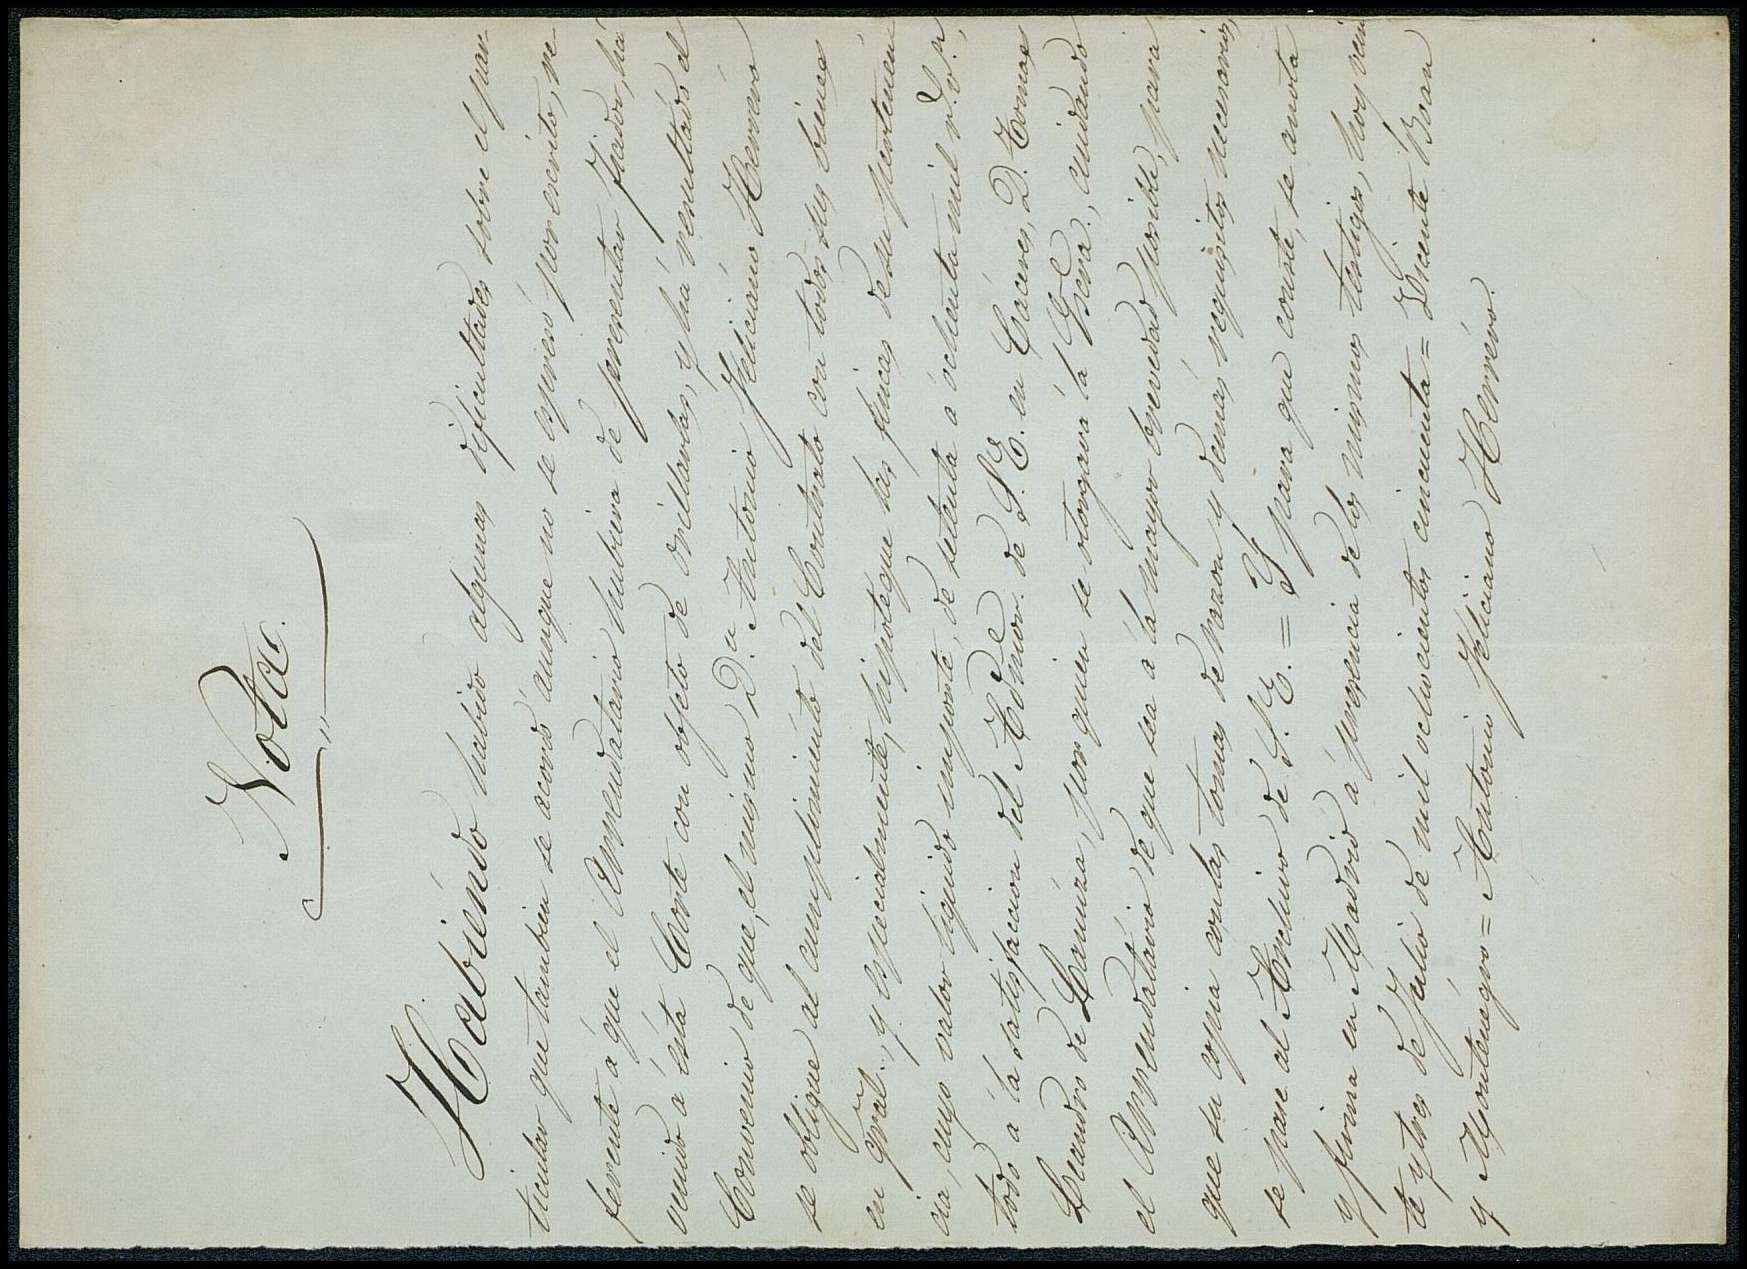 Nota.
Habiéndo habido algunas dificultades sobre el par-
ticular que tambien se acordó aunque no se espresó por escrito, re-
ferente á que el Arrendatário hubiera de presentar fiador, há
venido á ésta Corte con objeto de orillarlas, y há resultado el
Convenio de que, el mismo D.n Antonio Feliciano Herréro
se obligue al cumplimiento del Contrato con todos sus biénes
en gral., y especialmente, hipoteque las fincas de su pertenen
cia, cuyo valor líquido importe, de setenta á óchenta mil r.s v.n,
todo á la satisfaccion del Admor. de S.E. en Cáceres, D. Tomas
Leandro de Lamuza, por quien se otorgará la Escra., cuidando
el Arrendatário de que sea á la mayor brevedad posible, para
que su copia con las tomas de razon y demás requisitos necesarios,
se pase al Archivo de S.E. = Y para que conste, se anota
y firma en Madrid á presencia de los mismos testigos, hoy vein
te y tres de Julio de mil ochocientos cincuenta = Vicente Bran
y Montenégro = Antonio Feliciano Herréro.